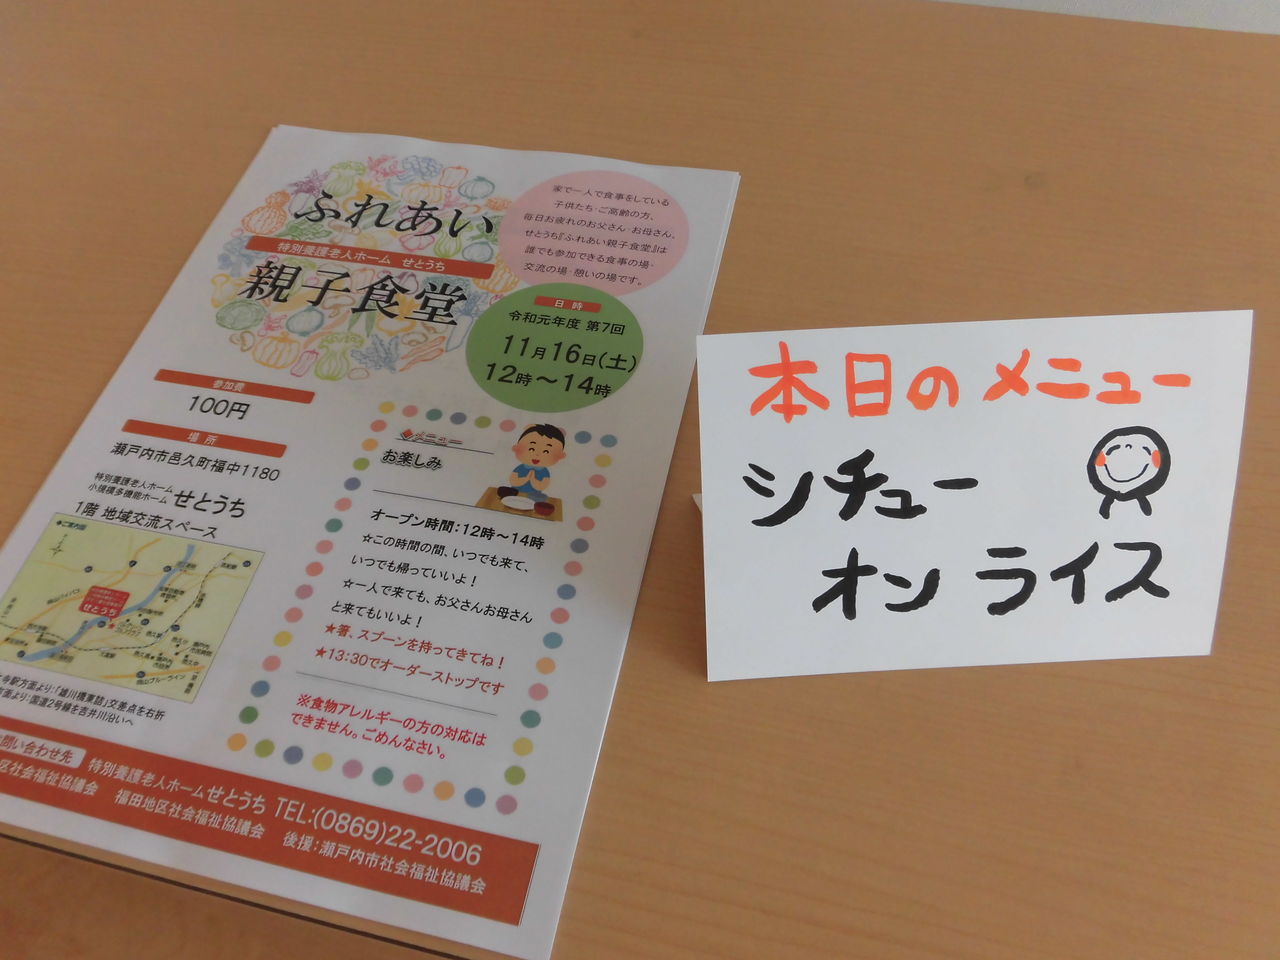 ふれあい
特別養護老人ホーム せとうち
親子食堂
家で一人で食事をしている
子供たち・ご高齢の方、
毎日お疲れのお父さん・お母さん、
せとうち『ふれあい親子食堂』は
誰でも参加できる食事の場・
交流の場・憩いの場です。
日時
令和元年度 第7回
11月16日(土)
12時～14時
参加費
100円
場所
瀬戸内市邑久町福中1180
特別養護老人ホーム
小規模多機能ホーム せとうち
1階 地域交流スペース
◆ご案内図
せとうち
◆メニュー
お楽しみ
オープン時間:12時～14時
☆この時間の間、いつでも来て、
いつでも帰っていいよ!
☆一人で来ても、お父さんお母さん
と来てもいいよ!
★箸、スプーンを持ってきてね!
★13:30でオーダーストップです
※食物アレルギーの方の対応は
できません。ごめんなさい。
寺駅方面より:「雄川橋東詰」交差点を右折
方面より:国道2号線を吉井川沿いへ
問い合わせ先 特別養護老人ホームせとうち TEL:(0869)22-2006
区社会福祉協議会 福田地区社会福祉協議会 後援:瀬戸内市社会福祉協議会
本日のメニュー
シチュー
オンライス